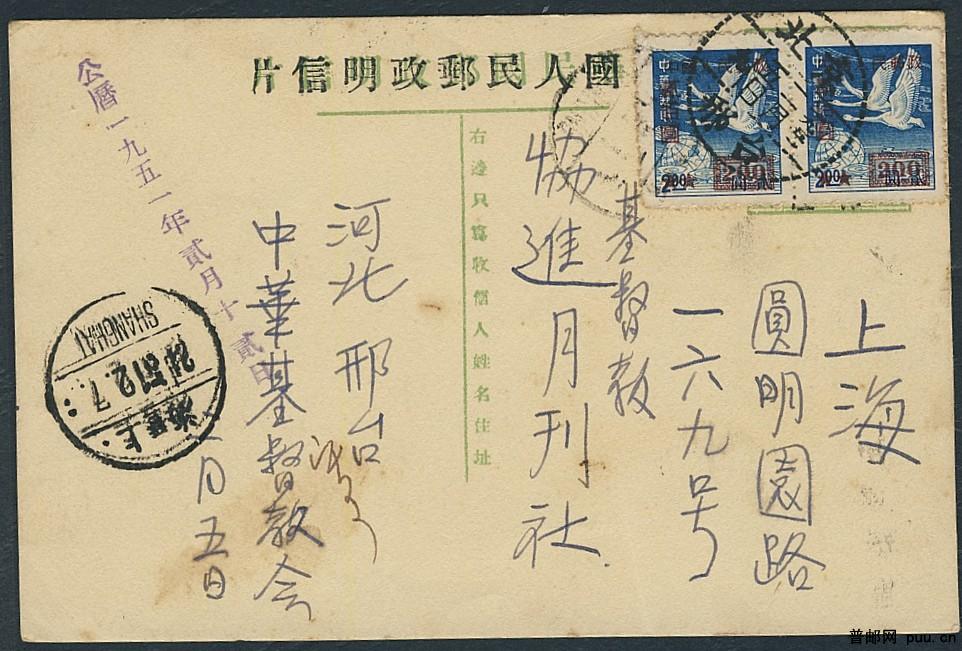 國人民郵政明信片
右邊只寫收信人姓名住址
上海
圓明園路
一六九号
基督教
協進月刊社
河北邢台
中華基督教会
月五日
公曆一九五一年貳月十貳日
SHANGHAI
上海
200
200
普邮网 puu.cn